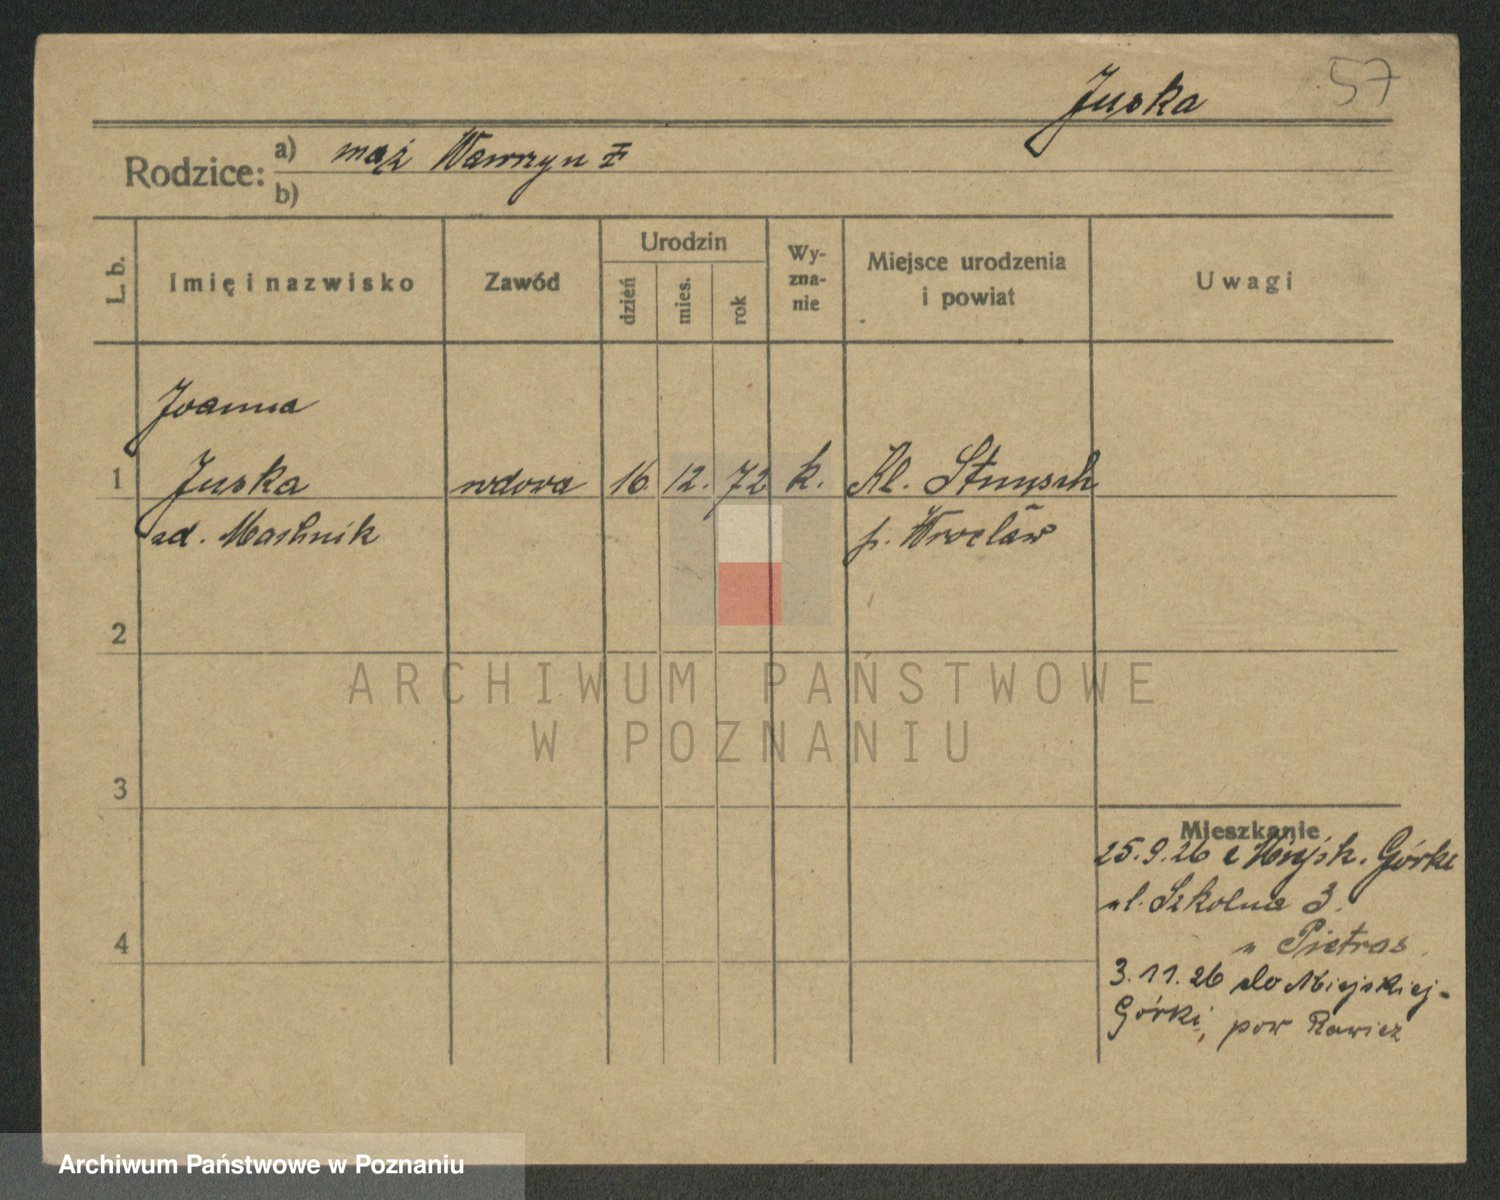 57
Juska
Rodzice: a) mąż Wawrzyn
b)
L. b.
Imię i nazwisko
Zawód
Urodzin
dzień
mies.
rok
Wy-
zna-
nie
Miejsce urodzenia
i powiat
Uwagi
Joanna
1 Juska wdowa 16. 12. 72 k. Kl.
zd. p. Wrocław
2
ARCHIWUM PAŃSTWOWE
W POZNANIU
3
Mieszkanie
25.9.26 z Miejsk. Górki
ul. Szkolna 3.
u Pietras
4
3.11.26 do Miejskiej-
Górki, pow Rawicz
Archiwum Państwowe w Poznaniu